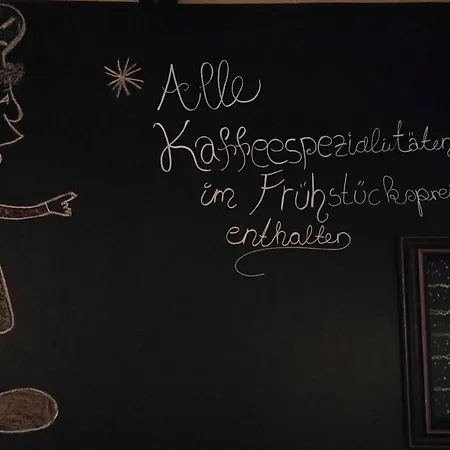 Alle
Kaffeespezialitäten
im Frühstücksprei
enthalten